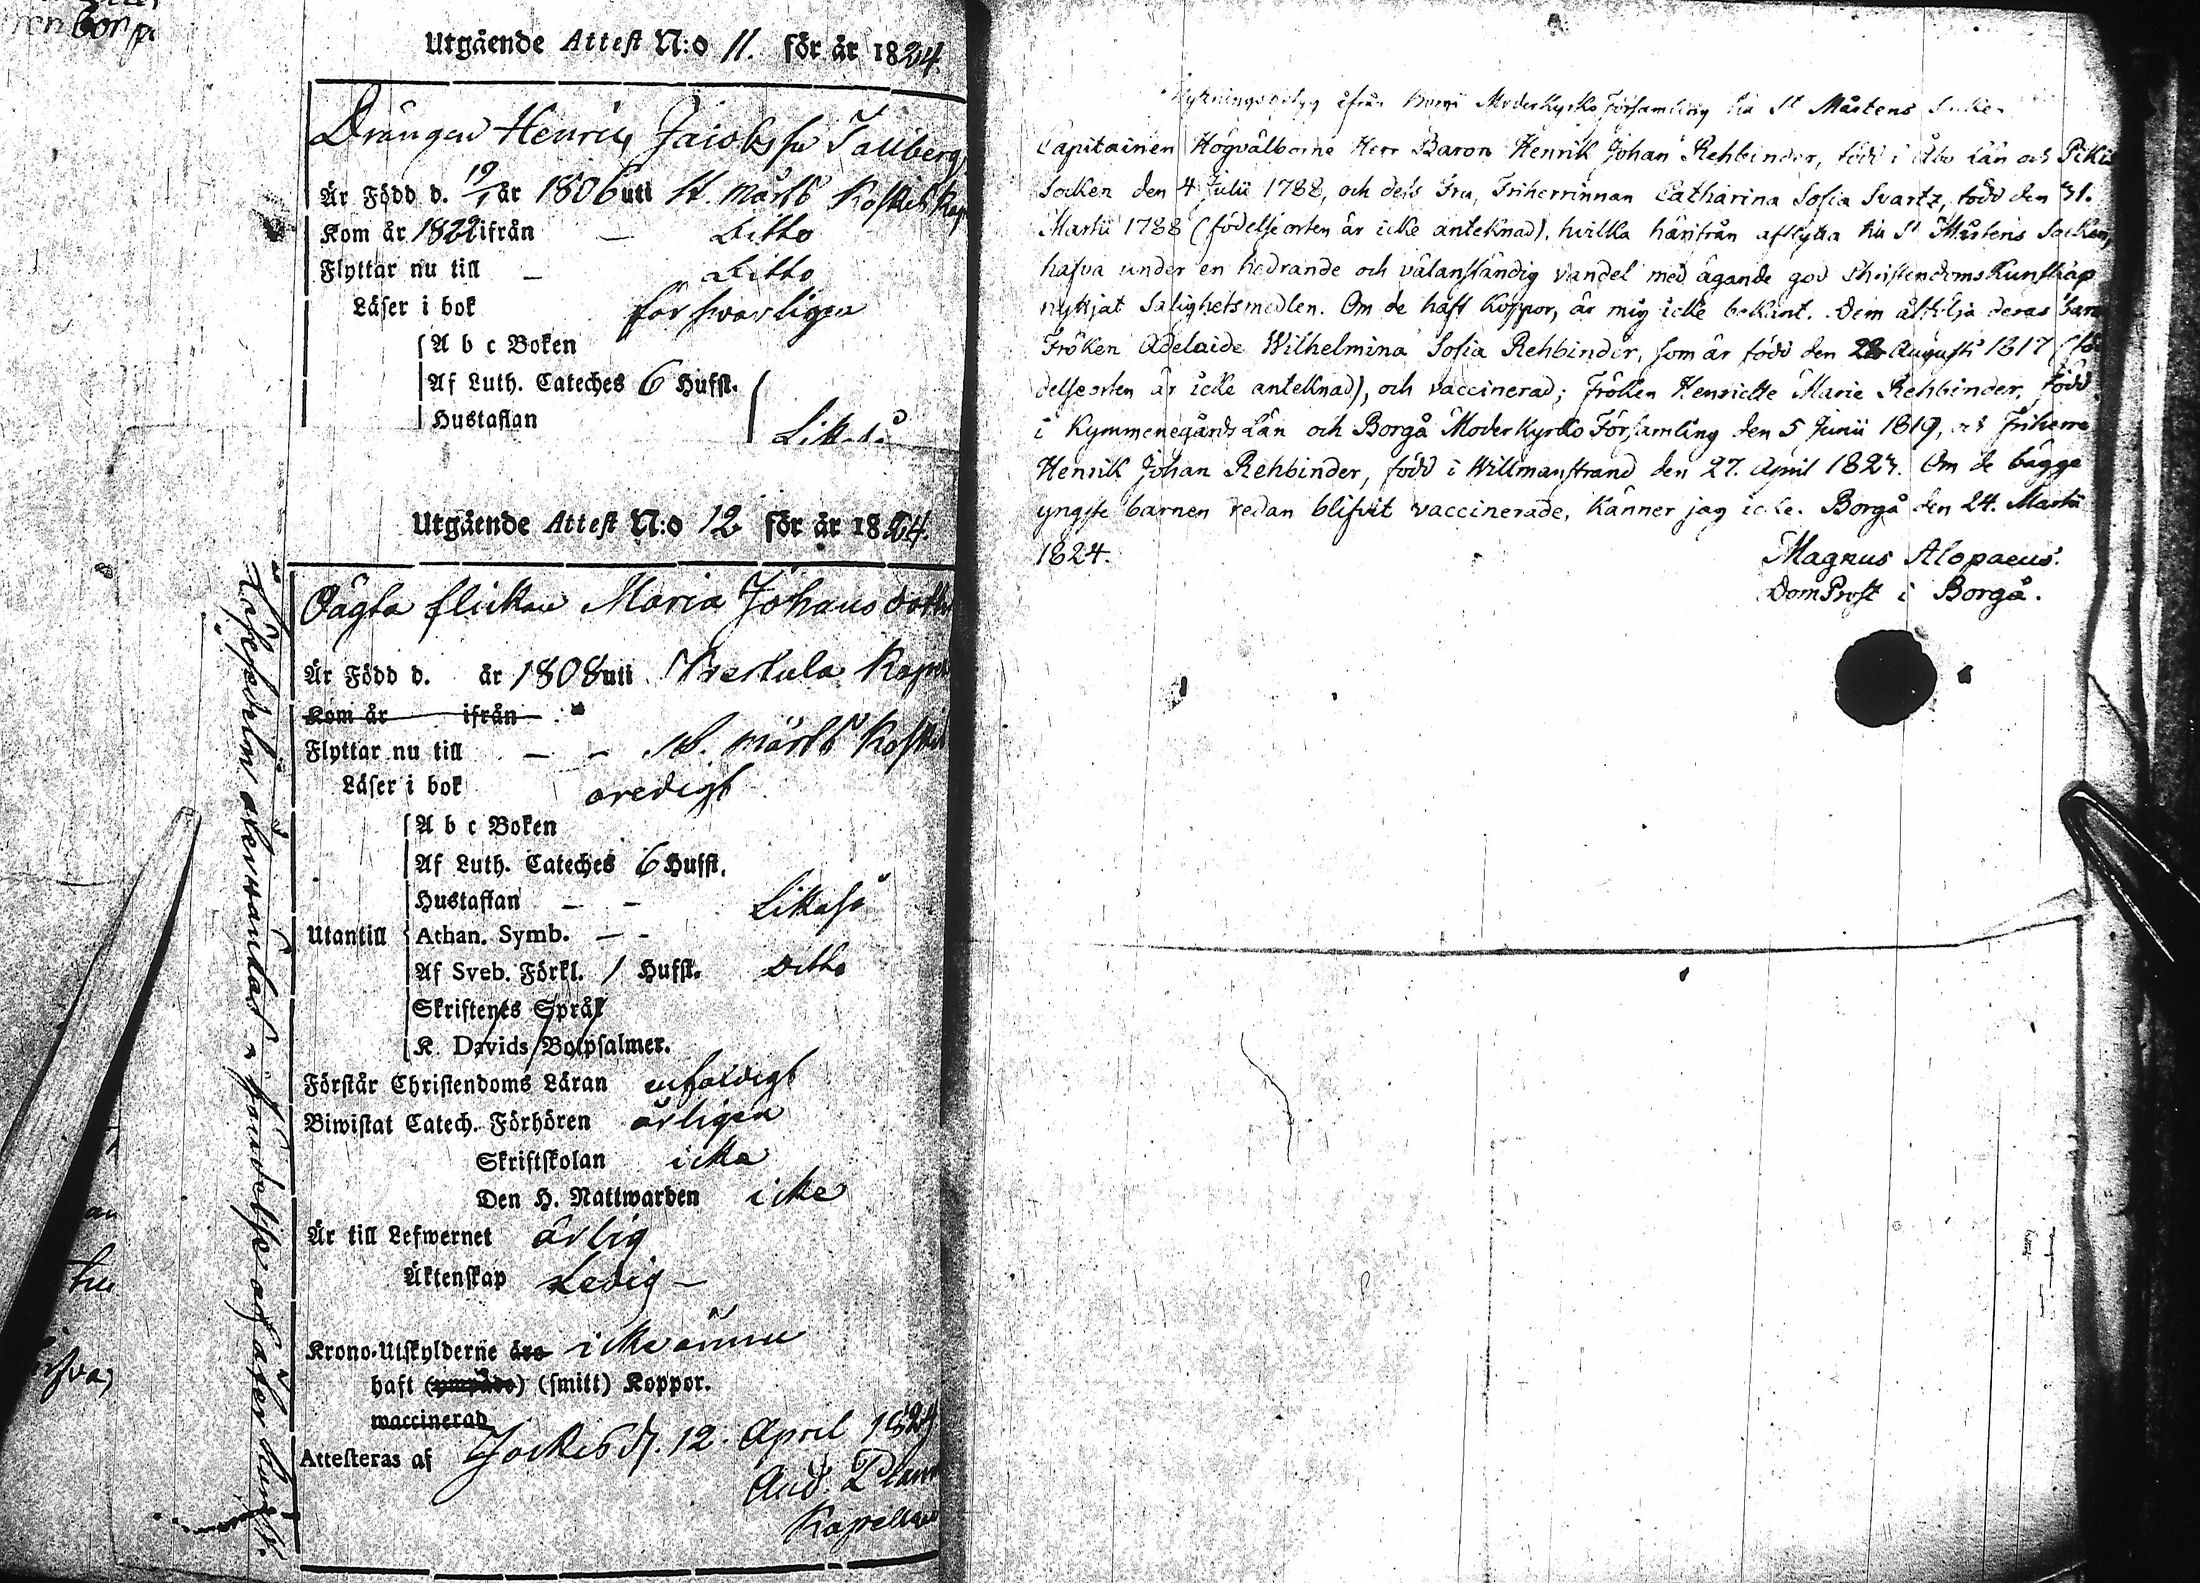 Utgående Attest N:o 11. för år 1824.
Drängen Henric Jacobsson Tallberg
Är Född d. 19/1 år 1806 uti St. Mårts Koskis Kap
Kom år 1822 ifrån — Ditto
Flyttar nu till — Ditto
Läser i bok försvarligen
A b c Boken
Af Luth. Cateches 6 Hufst.
Hustaflan
Likaså
Utgående Attest N:o 12 för år 1824.
Oägta flickan Maria Johansdotter
Är Född d. år 1808 uti Kapel
Kom år ifrån
Flyttar nu till — — St. Mårts Koskis
Läser i bok oredigt
A b c Boken
Af Luth. Cateches 6 Hufst.
Hustaflan — — Likaså
Utantill Athan. Symb. — —
Af Sveb. Förkl. 1 Hufst. Ditto
Skriftenes Språk
K. Davids Botpsalmer.
Förstår Christendoms Läran enfaldigt
Biwistat Catech. Förhören årligen
Skriftskolan icke
Den H. Nattwarden icke
Är till Lefwernet ärlig
Äktenskap Ledig —
Krono-Utskylderne äro icke ännu
haft (ympade) (smitt) Koppor.
waccinerad
Attesteras af Jockis d. 12. April 1824
And. Plan
Kapellan
ifrån Borgå ModerKyrko Församling till St Mårtens Socken
Capitainen Högvälborne Herr Baron Henrik Johan Rehbinder, född i Åbo Län och Pikis
Socken den 4 Julii 1788, och dess Fru, Friherrinnan Catharina Sofia Svartz, född den 31.
Martii 1788 (födelseorten är icke anteknad), hvilka härifrån aflytta till St Mårtens Socken,
hafva under en hedrande och välanständig vandel med ägande god ChristendomsKunskap
nyttjat Salighetsmedlen. Om de haft Koppor, är mig icke bekant. Dem åtfölja deras barn
Fröken Adelaide Wilhelmina Sofia Rehbinder, som är född den 28 Augusti 1817 (fö-
delseorten är icke anteknad), och vaccinerad; Fröken Henriette Marie Rehbinder, född
i Kymmenegårds Län och Borgå ModerKyrko Församling den 5 Junii 1819, och Friherre
Henrik Johan Rehbinder, född i Willmanstrand den 27. April 1823. Om de bägge
yngste barnen redan blifvit vaccinerade, känner jag icke. Borgå den 24. Martii
1824.
Magnus Alopaeus.
DomProst i Borgå.